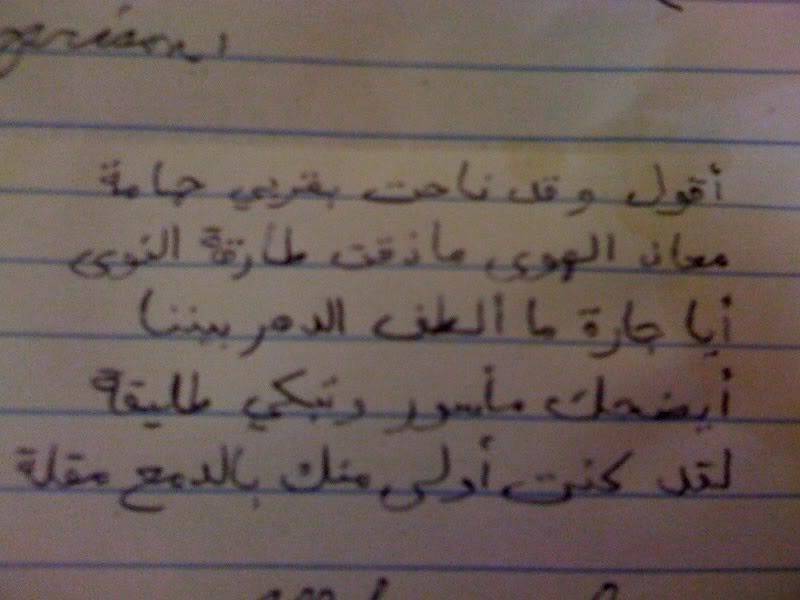 أقول وقد ناحت بقربي حمامة
معاذ الهوى ماذقت طارقة النوى
أيا جارة ما ألطف الدهر بيننا
أيضحك مأسور وتبكي طليقة
لقد كنت أولى منك بالدمع مقلة